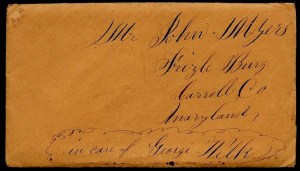 Mr John Myers
Frizle Burg
Carroll Co
Maryland,
in care of George Wilk